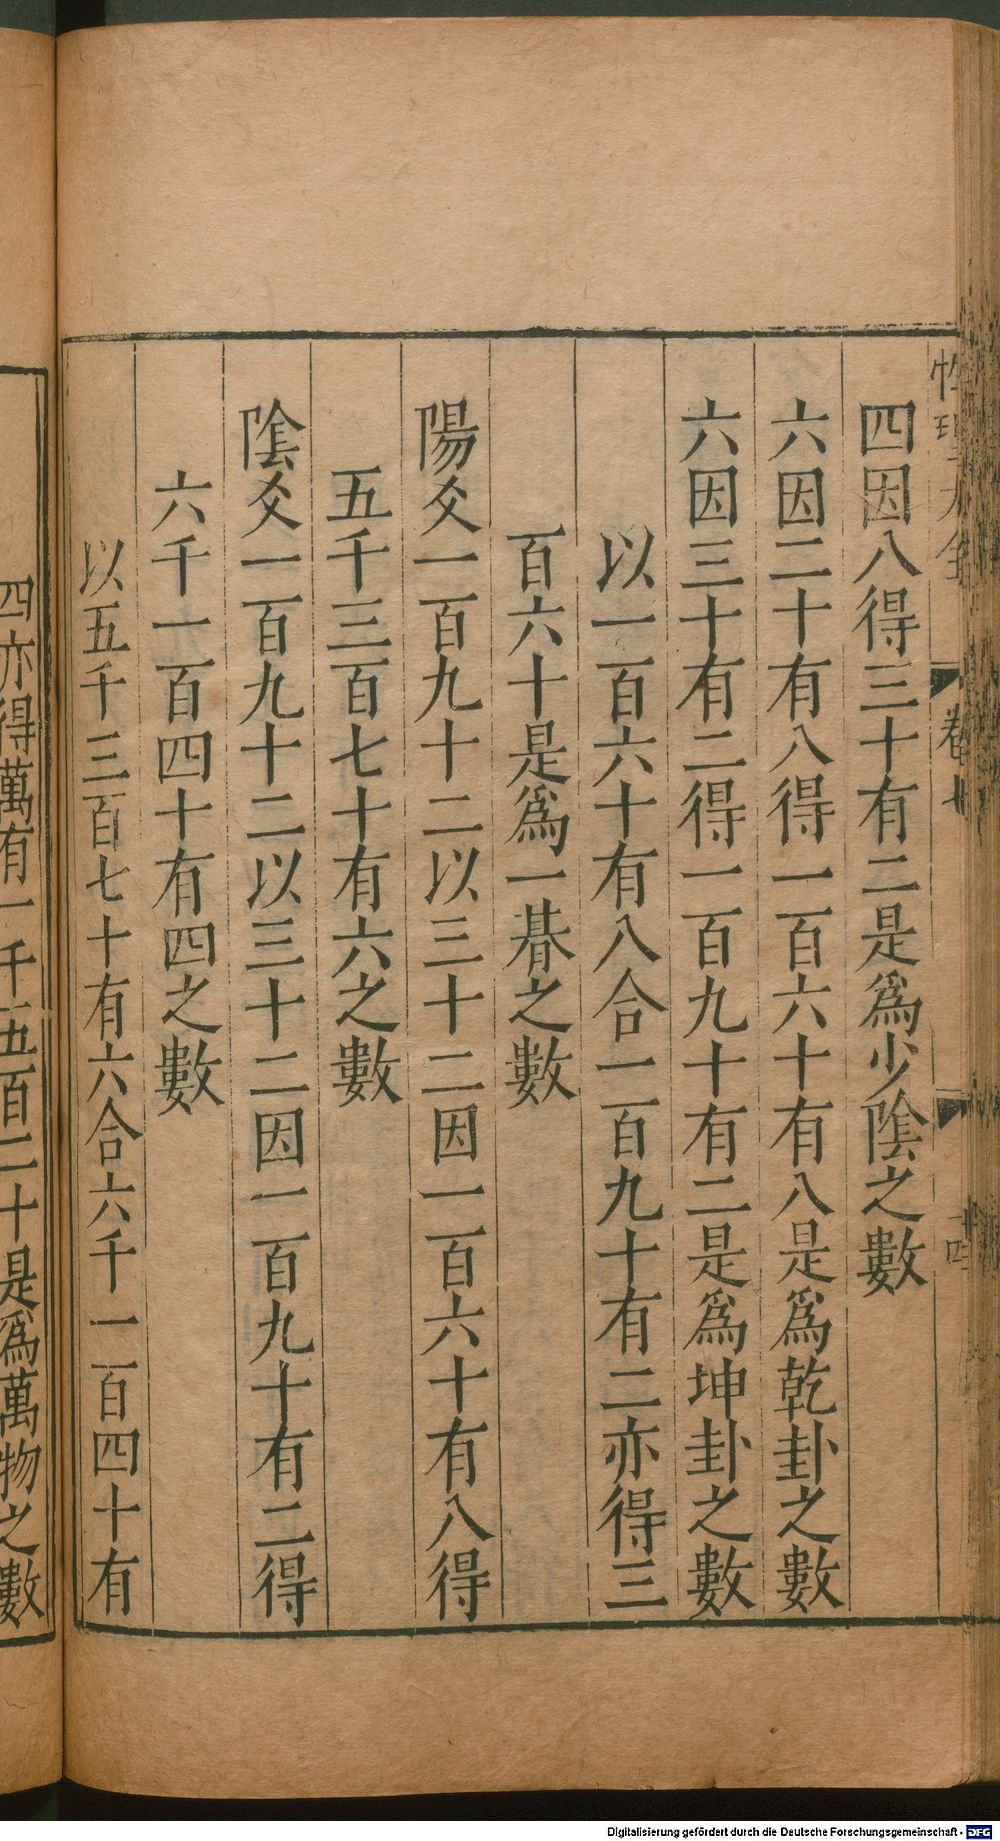 性理大全 卷七 十四
四因八得三十有二是爲少陰之數
六因二十有八得一百六十有八是爲乾卦之數
六因三十有二得一百九十有二是爲坤卦之數
以一百六十有八合一百九十有二亦得三
百六十是爲一朞之數
陽爻一百九十二以三十二因一百六十有八得
五千三百七十有六之數
陰爻一百九十二以三十二因一百九十有二得
六千一百四十有四之數
以五千三百七十有六合六千一百四十有
四亦得萬有一千五百二十是爲萬物之數
Digitalisierung gefördert durch die Deutsche Forschungsgemeinschaft - DFG